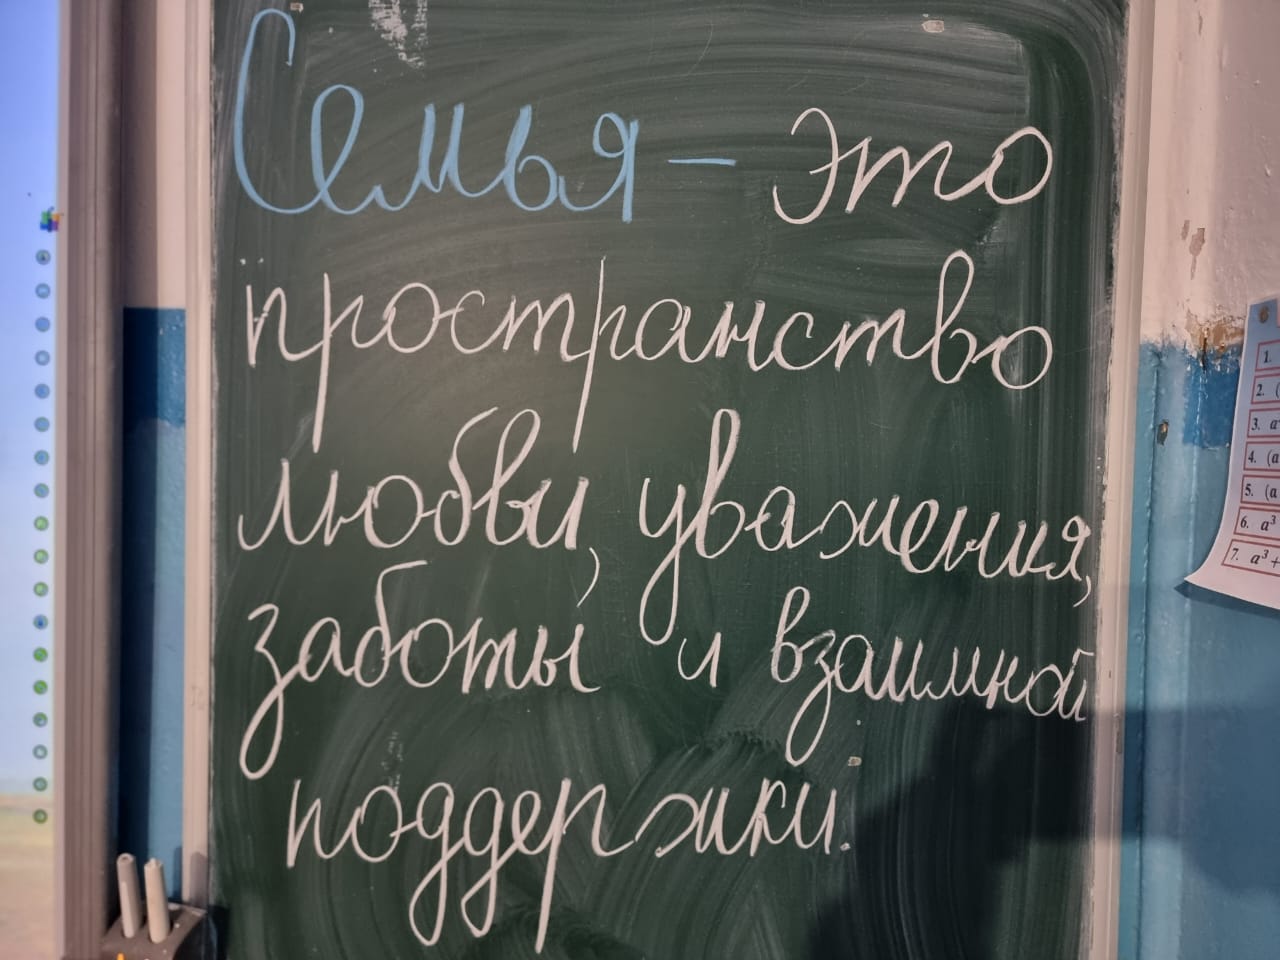 Семья – это
пространство
любви, уважения,
заботы и взаимной
поддержки.
1.
2. (
3. a
4. (a
5. (a
6. a³
7. a³ +